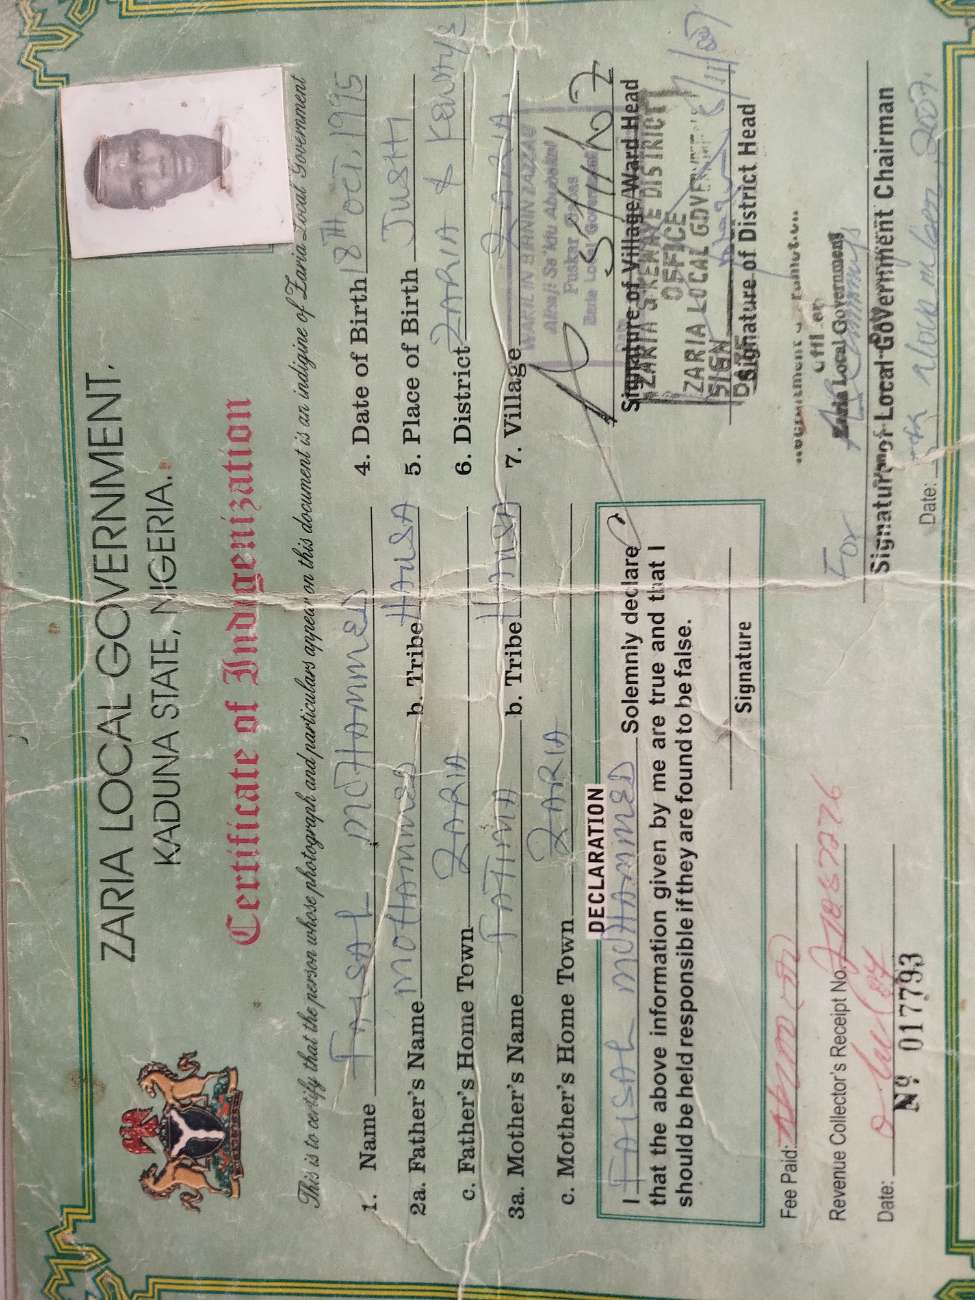 ZARIA LOCAL GOVERNMENT,
KADUNA STATE, NIGERIA.
Certificate of Indigenization
This is to certify that the person whose photograph and particulars appear on this document is an indigine of Zaria Local Government
1. Name FAISAL MOHAMMED
2a. Father's Name MOHAMMED b. Tribe HAUSA
c. Father's Home Town ZARIA
3a. Mother's Name FATIMA b. Tribe HAUSA
c. Mother's Home Town ZARIA
4. Date of Birth 18TH OCT, 1995
5. Place of Birth JUSHI
6. District ZARIA & KEWAYE
7. Village ZARIA
WAKILIN BIRNIN ZAZZAU
Alhaji Sa'idu Abubakar
Signature of Village/Ward Head
ZARIA & KEWAYE DISTRICT
OFFICE
ZARIA LOCAL GOVERNMENT
SIGN
DATE
Signature of District Head
DECLARATION
I FAISAL MOHAMMED Solemnly declare
that the above information given by me are true and that I
should be held responsible if they are found to be false.
Signature
For
Zaria Local Government
Signature of Local Government Chairman
Date: November 2007.
Fee Paid:
Revenue Collector's Receipt No.
Date:
Nº 017793